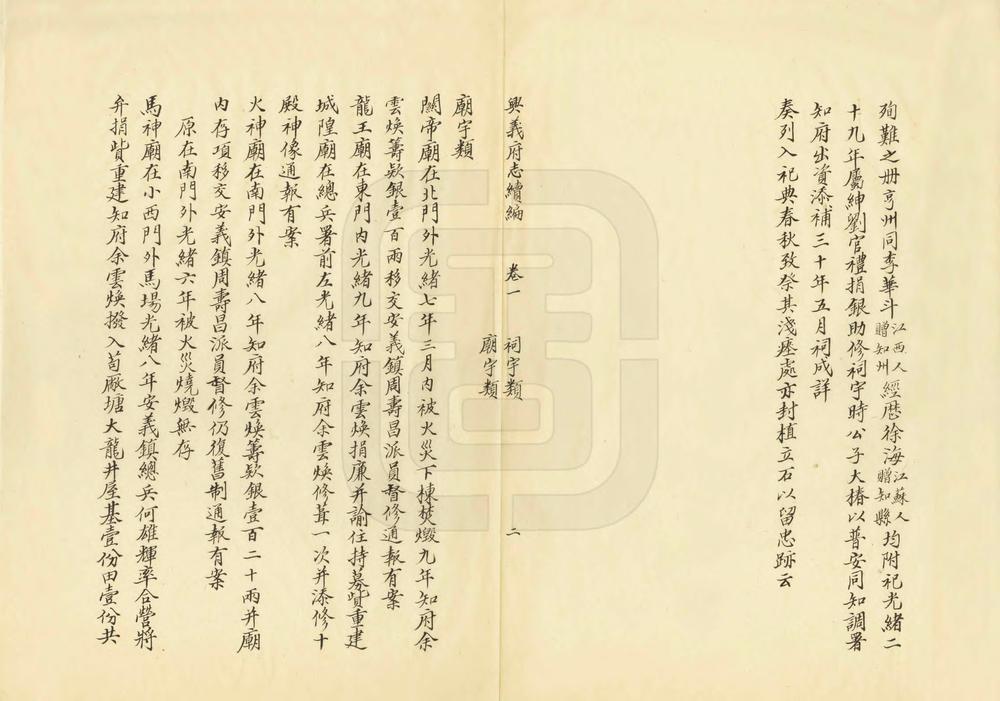 殉難之册亨州同李華斗江西人贈知州經歷徐海江蘇人贈知縣均附祀光緒二
十九年屬紳劉官禮捐銀助修祠宇時公子大椿以普安同知調署
知府出資添補三十年五月祠成詳
奏列入祀典春秋致祭其淺瘞處亦封植立石以留忠跡云
興義府志續編 卷一 祠宇類 廟宇類 二
廟宇類
關帝廟在北門外光緒七年三月內被火災下棟焚燬九年知府余
雲煥籌欵銀壹百兩移交安義鎮周壽昌派員督修通報有案
龍王廟在東門內光緒九年知府余雲煥捐廉并諭住持募貲重建
城隍廟在總兵署前左光緒八年知府余雲煥修葺一次并添修十
殿神像通報有案
火神廟在南門外光緒八年知府余雲煥籌欵銀壹百二十兩并廟
內存項移交安義鎮周壽昌派員督修仍復舊制通報有案
原在南門外光緒六年被火災燒燬無存
馬神廟在小西門外馬場光緒八年安義鎮總兵何雄輝率合營將
弁捐貲重建知府余雲煥撥入苟厰塘大龍井屋基壹份田壹份共